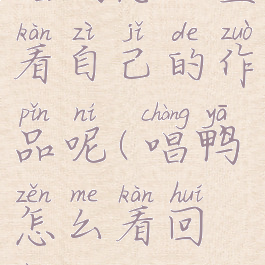 kàn zì jǐ de zuò
看自己的作
pǐn ní chàng yā
品呢(唱鸭
zěn me kàn huí
怎么看回